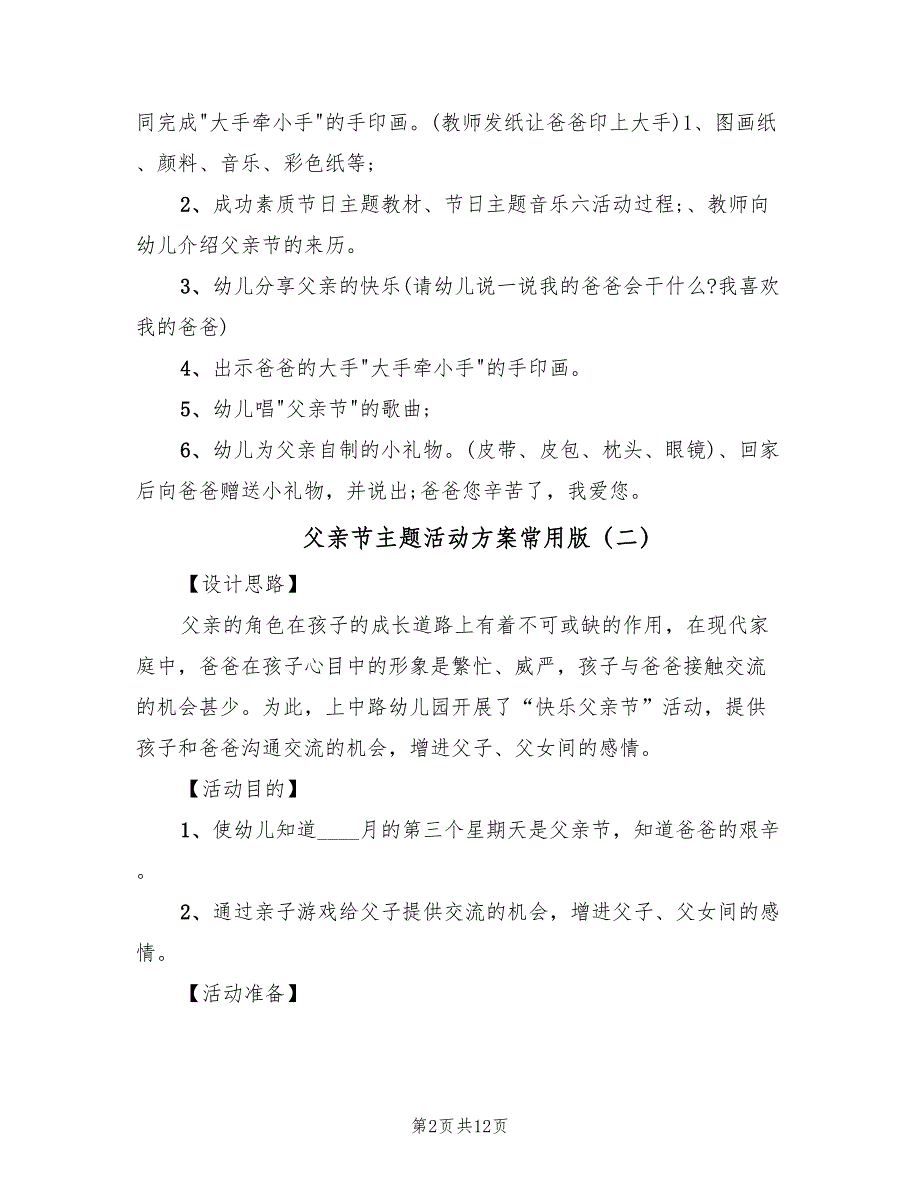 同完成"大手牵小手"的手印画。(教师发纸让爸爸印上大手)1、图画纸
、颜料、音乐、彩色纸等;
2、成功素质节日主题教材、节日主题音乐六活动过程;、教师向
幼儿介绍父亲节的来历。
3、幼儿分享父亲的快乐(请幼儿说一说我的爸爸会干什么?我喜欢
我的爸爸)
4、出示爸爸的大手"大手牵小手"的手印画。
5、幼儿唱"父亲节"的歌曲;
6、幼儿为父亲自制的小礼物。(皮带、皮包、枕头、眼镜)、回家
后向爸爸赠送小礼物，并说出;爸爸您辛苦了，我爱您。
父亲节主题活动方案常用版（二）
【设计思路】
父亲的角色在孩子的成长道路上有着不可或缺的作用，在现代家
庭中，爸爸在孩子心目中的形象是繁忙、威严，孩子与爸爸接触交流
的机会甚少。为此，上中路幼儿园开展了“快乐父亲节”活动，提供
孩子和爸爸沟通交流的机会，增进父子、父女间的感情。
【活动目的】
1、使幼儿知道____月的第三个星期天是父亲节，知道爸爸的艰辛
。
2、通过亲子游戏给父子提供交流的机会，增进父子、父女间的感
情。
【活动准备】
第2页共12页